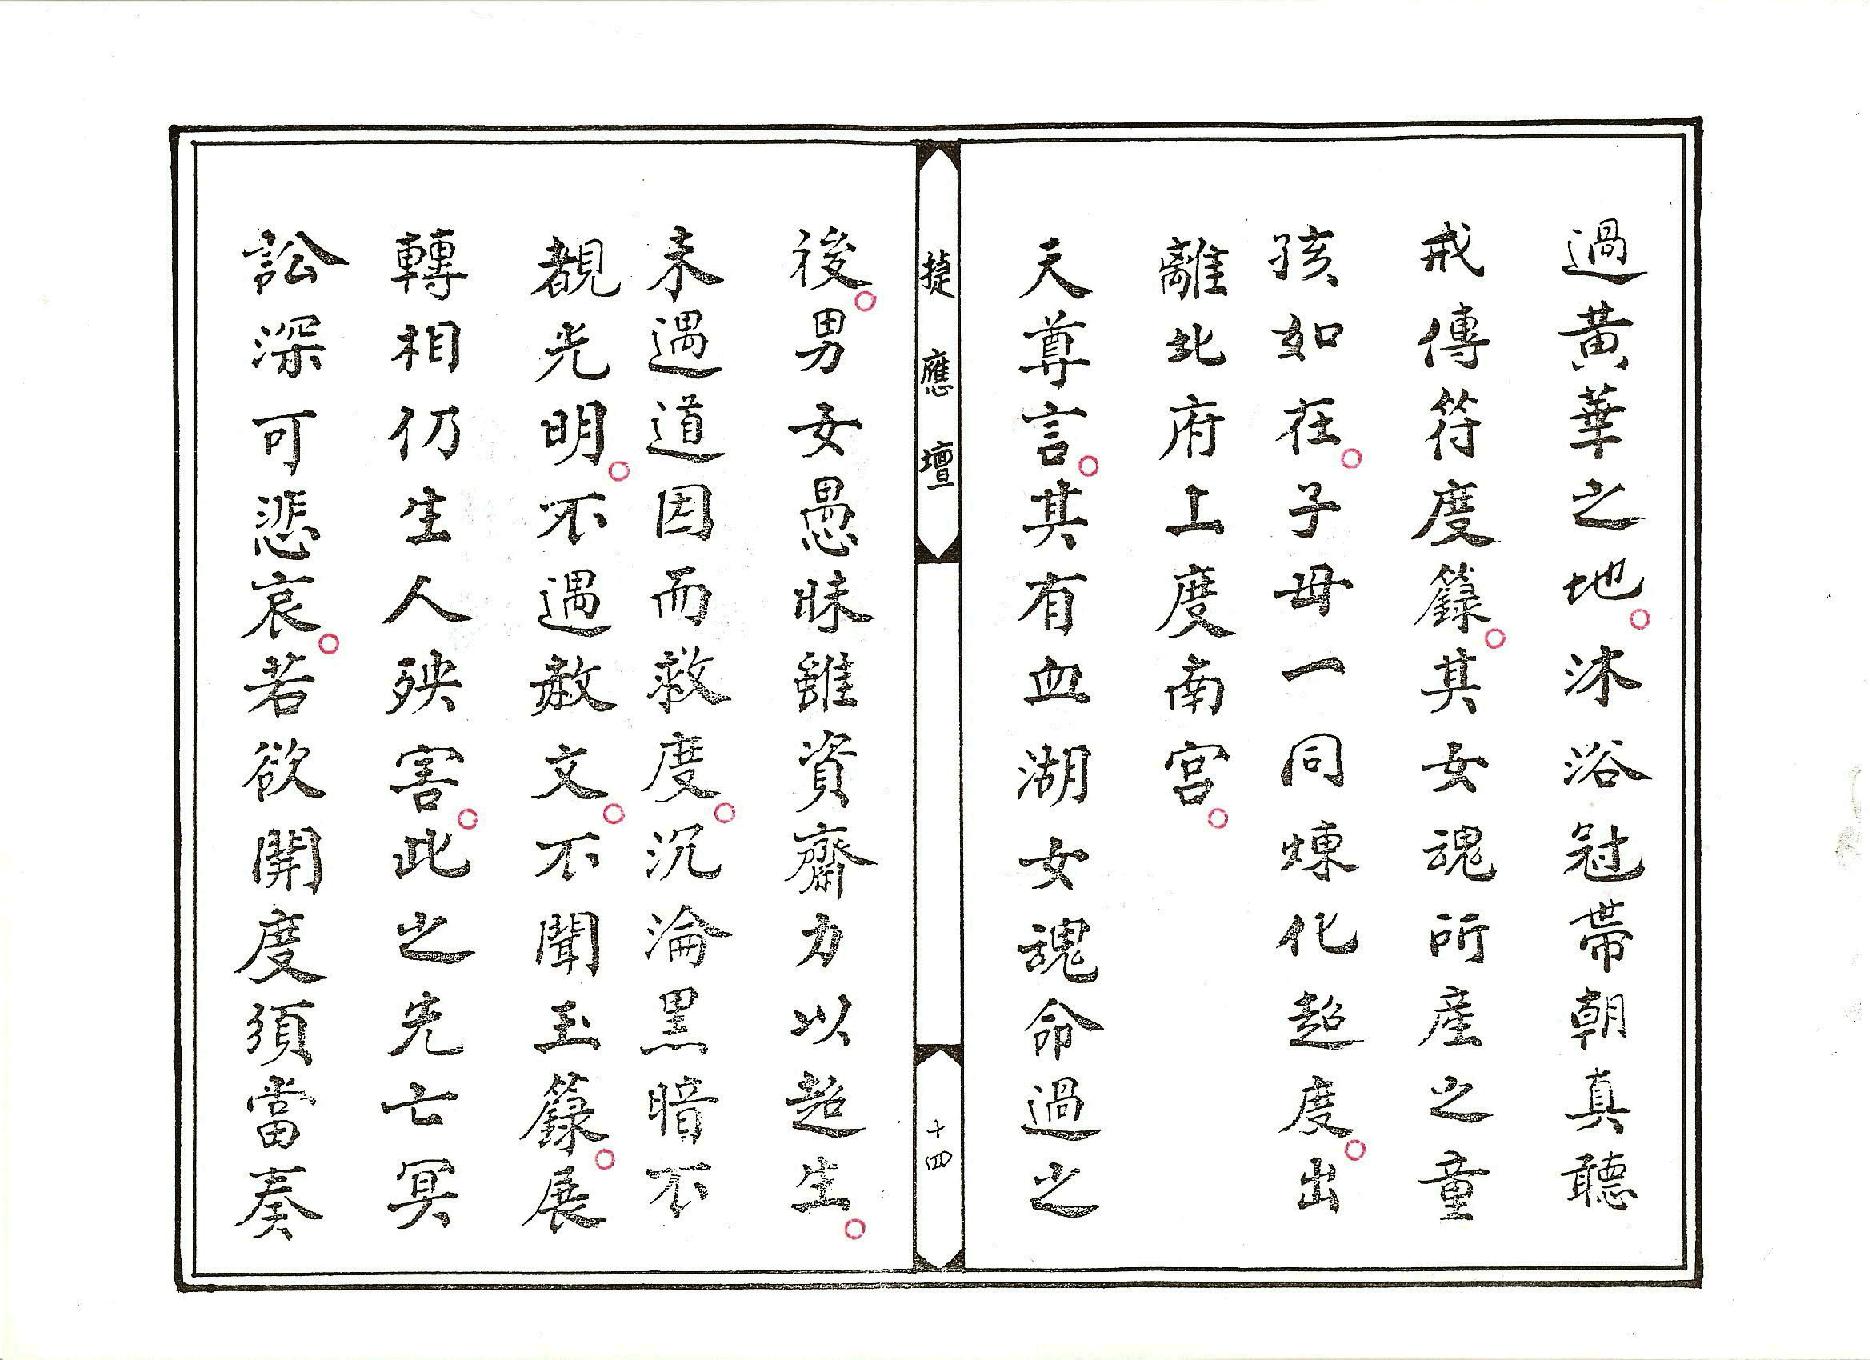 過黃華之地。沐浴冠帶朝真聽
戒傳符度籙。其女魂所產之童
孩如在。子母一同煉化超度。出
離北府上度南宮。
天尊言。其有血湖女魂命過之
捷應壇
十四
後。男女愚昧誰資齋力以超生。
未遇道因而救度。沉淪黑暗不
覩光明。不遇赦文。不聞玉籙。展
轉相仍生人殃害。此之先亡冥
訟深可悲哀。若欲開度須當奏